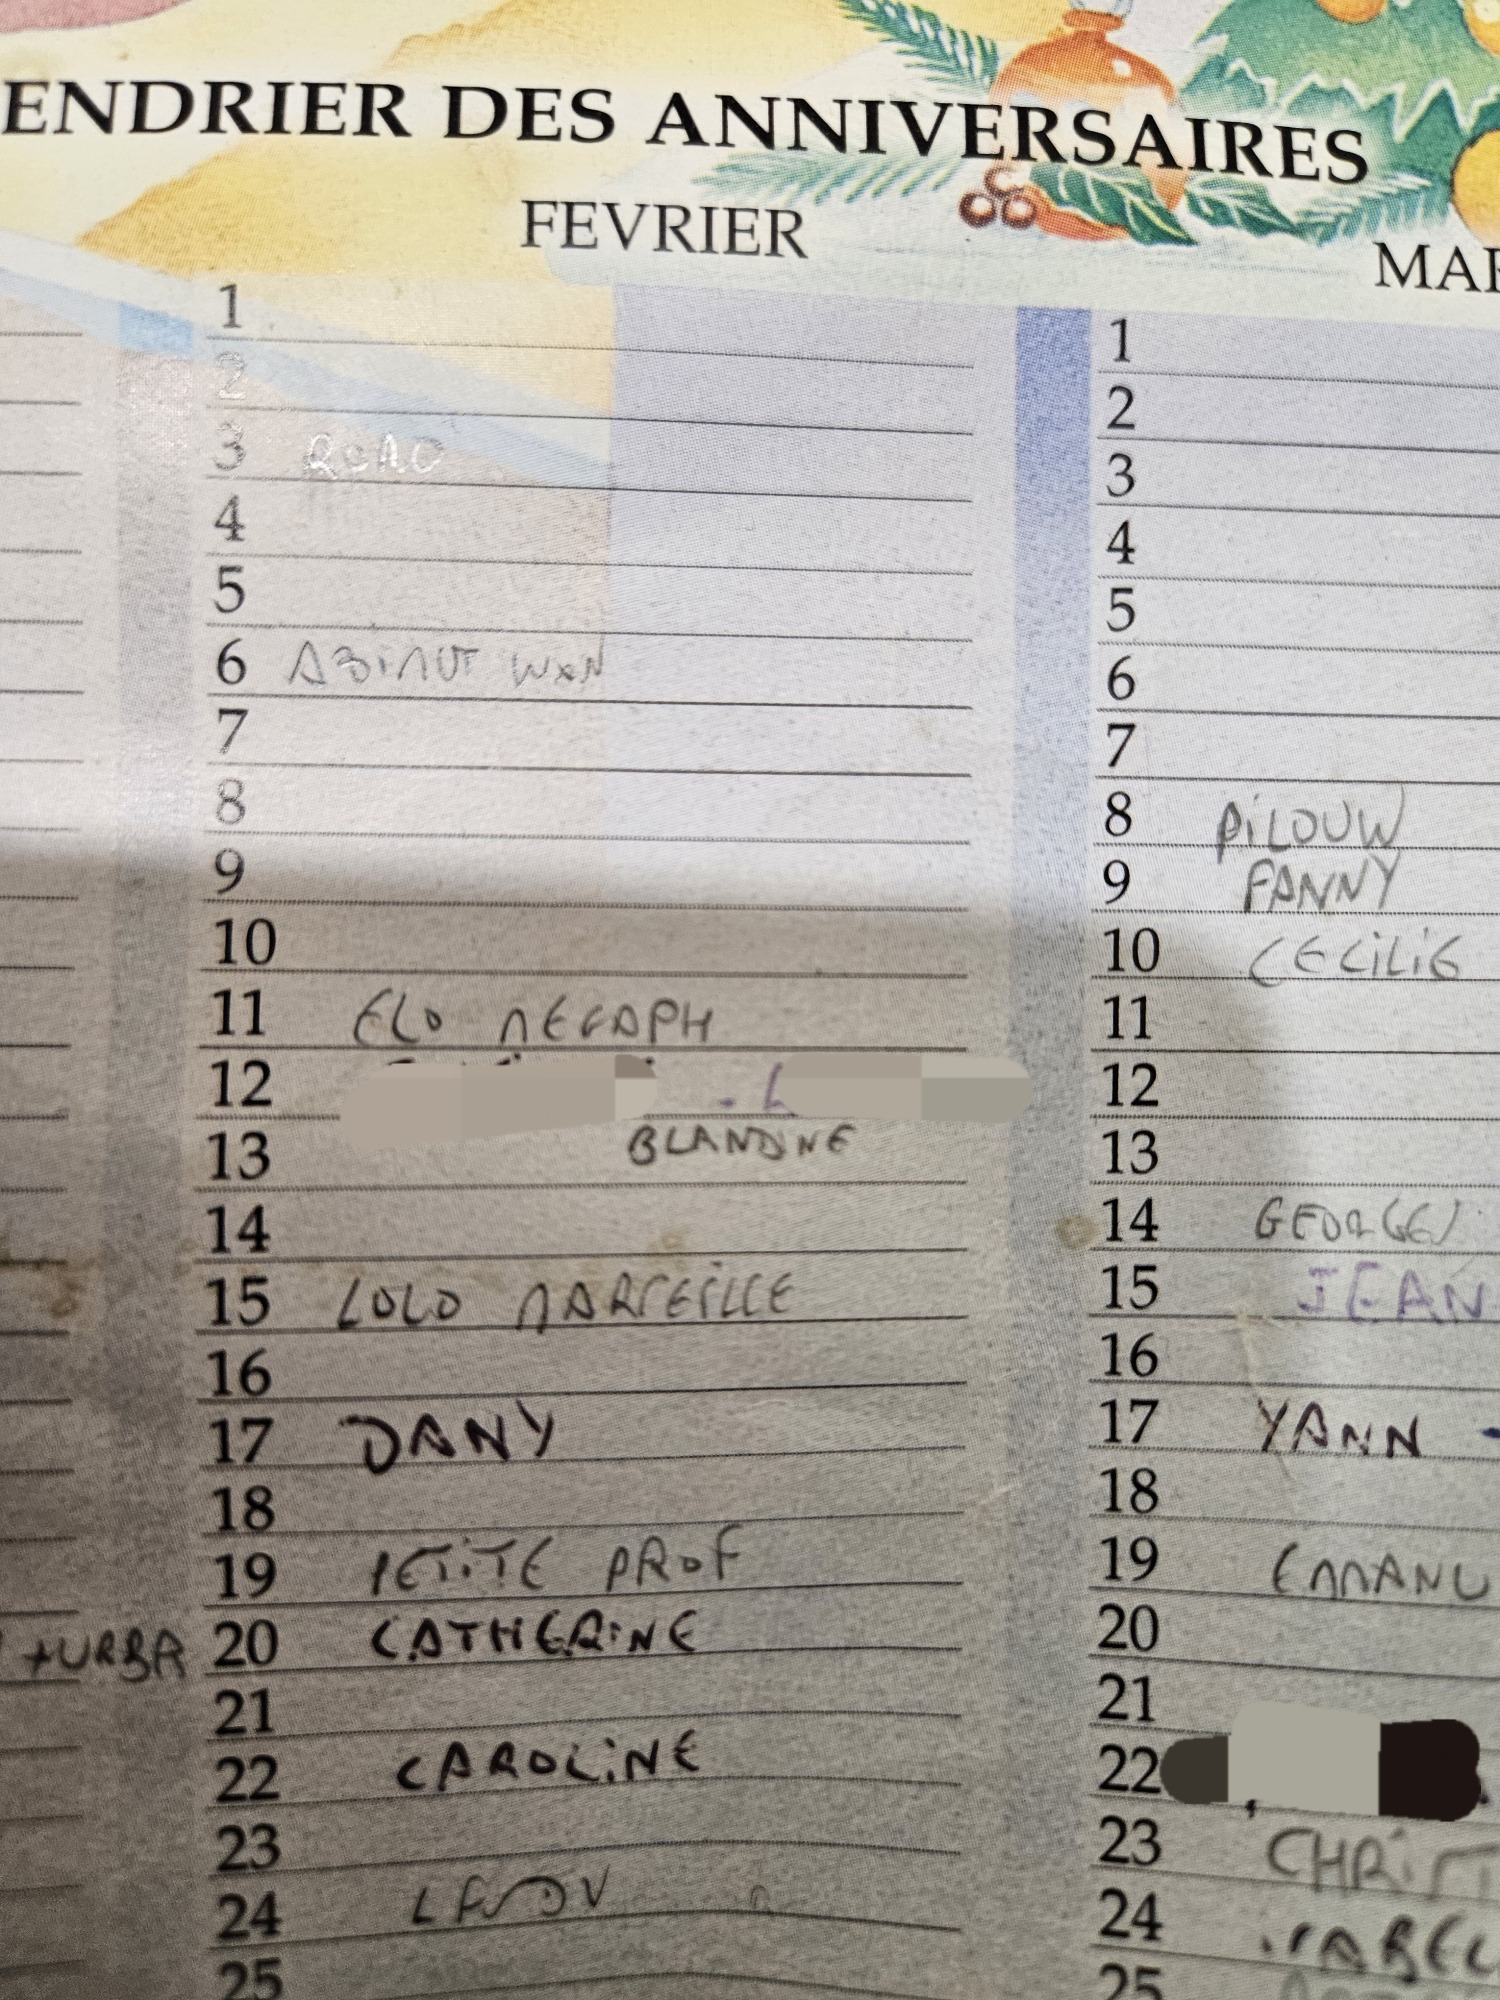 ENDRIER DES ANNIVERSAIRES
FEVRIER
1
2
3
4
5
6
7
8
9
10
11 ELO
12
13 BLANDINE
14
15 LOLO MARSEILLE
16
17 DANY
18
19 PETITE PROF
+URBA
20 CATHERINE
21
22 CAROLINE
23
24
25
MAR
1
2
3
4
5
6
7
8 PILOUW
9 FANNY
10 CECILIE
11
12
13
14 GEORGES
15 JEAN
16
17 YANN -
18
19 EMMANU
20
21
22
23 CHRIST
24
25